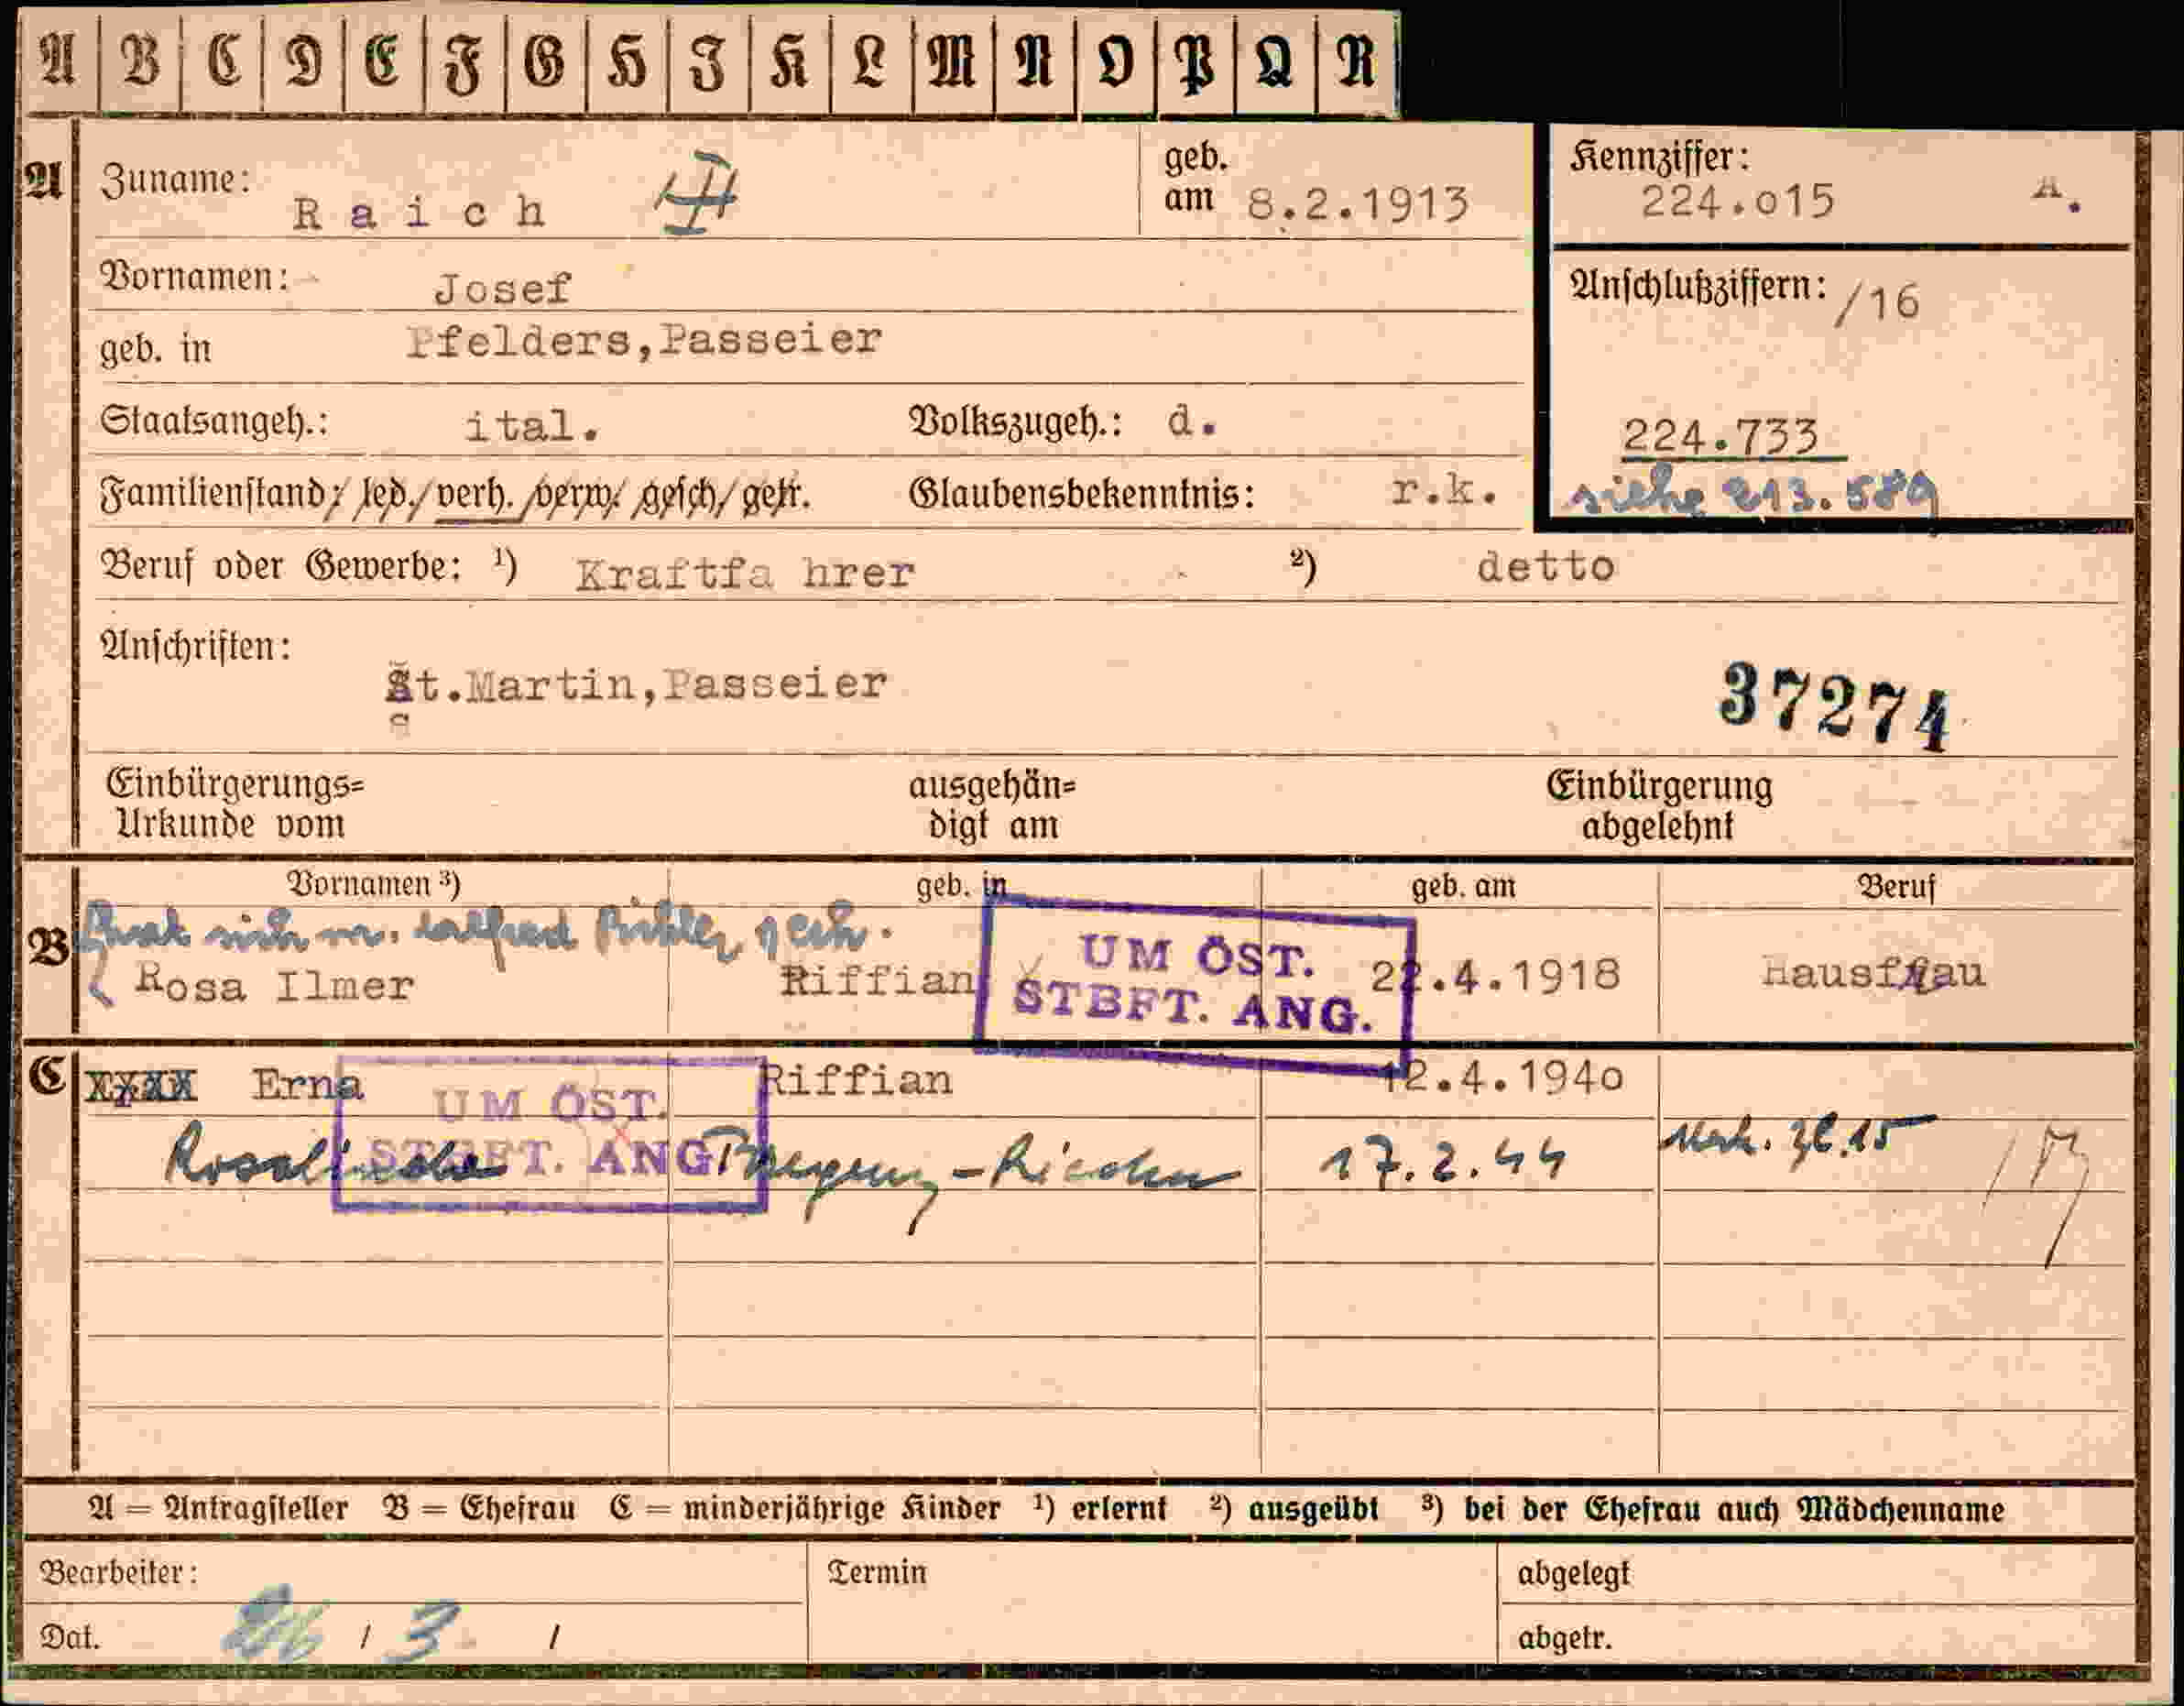 A B C D E F G H I K L M N O P Q R
A Zuname: Raich
geb. am 8.2.1913
Kennziffer: 224.015 A.
Vornamen: Josef
Anschlußziffern: /16
geb. in Pfelders,Passeier
Staatsangeh.: ital. Volkszugeh.: d.
224.733
Familienstand: led./verh./verw./gesch/getr. Glaubensbekenntnis: r.k.
siehe 213.589
Beruf oder Gewerbe: ¹) Kraftfa hrer ²) detto
Anschriften: St.Martin,Passeier
37274
Einbürgerungs=
Urkunde vom
ausgehän=
digt am
Einbürgerung
abgelehnt
Vornamen ³) geb. in geb. am Beruf
B hat sich m. gesch.
Rosa Ilmer Riffian 22.4.1918 Hausfrau
UM ÖST.
STBFT. ANG.
C XXXX Erna Riffian 12.4.1940
UM ÖST.
STBFT. ANG.
Rosalinde 17.2.44
A = Antragsteller B = Ehefrau C = minderjährige Kinder ¹) erlernt ²) ausgeübt ³) bei der Ehefrau auch Mädchenname
Bearbeiter: Termin abgelegt
Dat. 26 / 3 / abgetr.